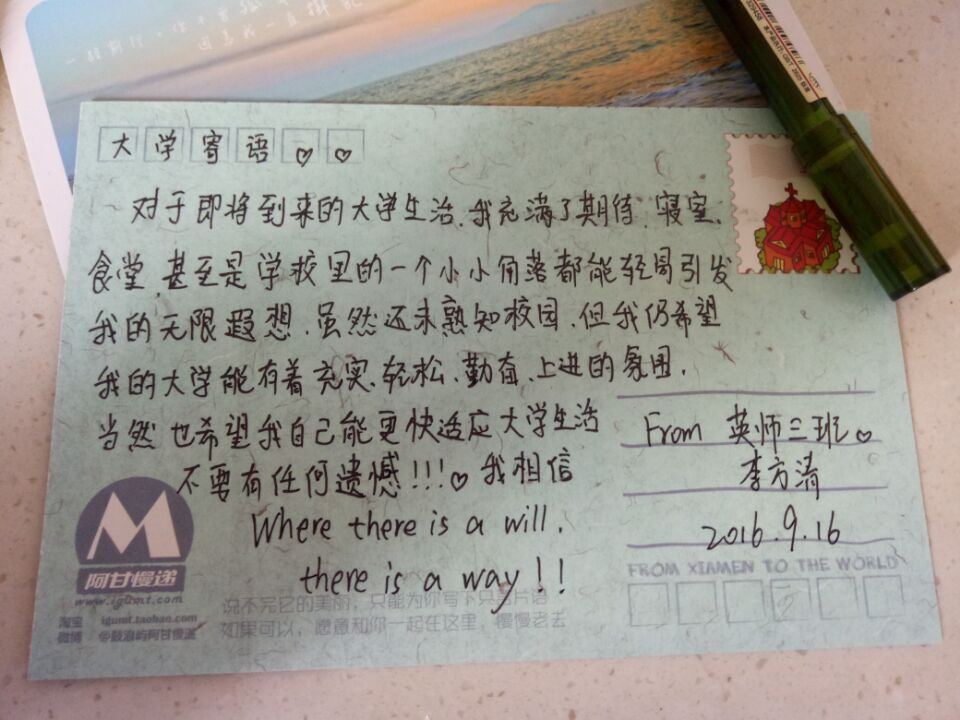 大学寄语♡♡
对于即将到来的大学生活、我充满了期待、寝室、
食堂、甚至是学校里的一个小小角落都能轻易引发
我的无限遐想、虽然还未熟知校园、但我仍希望
我的大学能有着充实、轻松、勤奋、上进的氛围.
当然 也希望我自己能更快适应大学生活
不要有任何遗憾!!!♡ 我相信
Where there is a will.
there is a way!!
From 英师三班♡
李方清
2016.9.16
FROM XIAMEN TO THE WORLD
M
阿甘慢递
www.igumt.com
淘宝 igumt.taobao.com
微博 @鼓浪屿阿甘慢递
说不完它的美丽，只能为你写下只言片语
如果可以，愿意和你一起在这里，慢慢老去